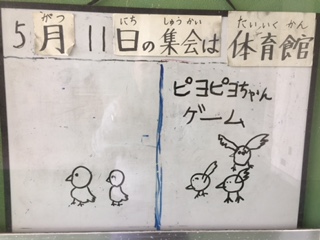 がつ にち しゅうかい たいいくかん
5月11日の集会は体育館
ピヨピヨちゃん
ゲーム